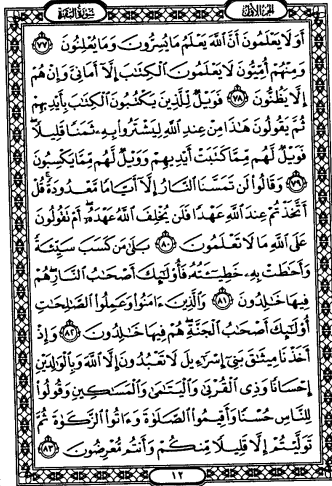 الجزء الأول
سورة البقرة
أَوَلَا يَعْلَمُونَ أَنَّ اللَّهَ يَعْلَمُ مَا يُسِرُّونَ وَمَا يُعْلِنُونَ ٧٧
وَمِنْهُمْ أُمِّيُّونَ لَا يَعْلَمُونَ الْكِتَابَ إِلَّا أَمَانِيَّ وَإِنْ هُمْ
إِلَّا يَظُنُّونَ ٧٨ فَوَيْلٌ لِّلَّذِينَ يَكْتُبُونَ الْكِتَابَ بِأَيْدِيهِمْ
ثُمَّ يَقُولُونَ هَٰذَا مِنْ عِندِ اللَّهِ لِيَشْتَرُوا بِهِ ثَمَنًا قَلِيلًا
فَوَيْلٌ لَّهُم مِّمَّا كَتَبَتْ أَيْدِيهِمْ وَوَيْلٌ لَّهُم مِّمَّا يَكْسِبُونَ
٧٩ وَقَالُوا لَن تَمَسَّنَا النَّارُ إِلَّا أَيَّامًا مَّعْدُودَةً قُلْ
أَتَّخَذْتُمْ عِندَ اللَّهِ عَهْدًا فَلَن يُخْلِفَ اللَّهُ عَهْدَهُ أَمْ تَقُولُونَ
عَلَى اللَّهِ مَا لَا تَعْلَمُونَ ٨٠ بَلَىٰ مَن كَسَبَ سَيِّئَةً
وَأَحَاطَتْ بِهِ خَطِيئَتُهُ فَأُولَٰئِكَ أَصْحَابُ النَّارِ هُمْ
فِيهَا خَالِدُونَ ٨١ وَالَّذِينَ آمَنُوا وَعَمِلُوا الصَّالِحَاتِ
أُولَٰئِكَ أَصْحَابُ الْجَنَّةِ هُمْ فِيهَا خَالِدُونَ ٨٢ وَإِذْ
أَخَذْنَا مِيثَاقَ بَنِي إِسْرَائِيلَ لَا تَعْبُدُونَ إِلَّا اللَّهَ وَبِالْوَالِدَيْنِ
إِحْسَانًا وَذِي الْقُرْبَىٰ وَالْيَتَامَىٰ وَالْمَسَاكِينِ وَقُولُوا
لِلنَّاسِ حُسْنًا وَأَقِيمُوا الصَّلَاةَ وَآتُوا الزَّكَاةَ ثُمَّ
تَوَلَّيْتُمْ إِلَّا قَلِيلًا مِّنكُمْ وَأَنتُم مُّعْرِضُونَ ٨٣
١٢